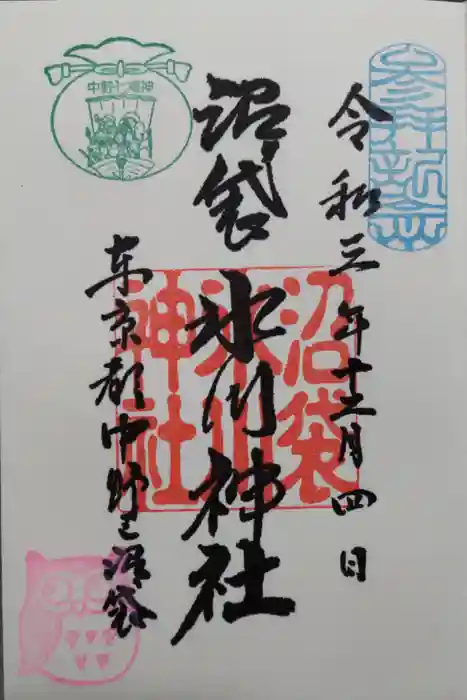 参拝記念
令和三年十二月四日
沼袋氷川神社
沼袋
氷川
神社
中野七福神
東京都中野区沼袋